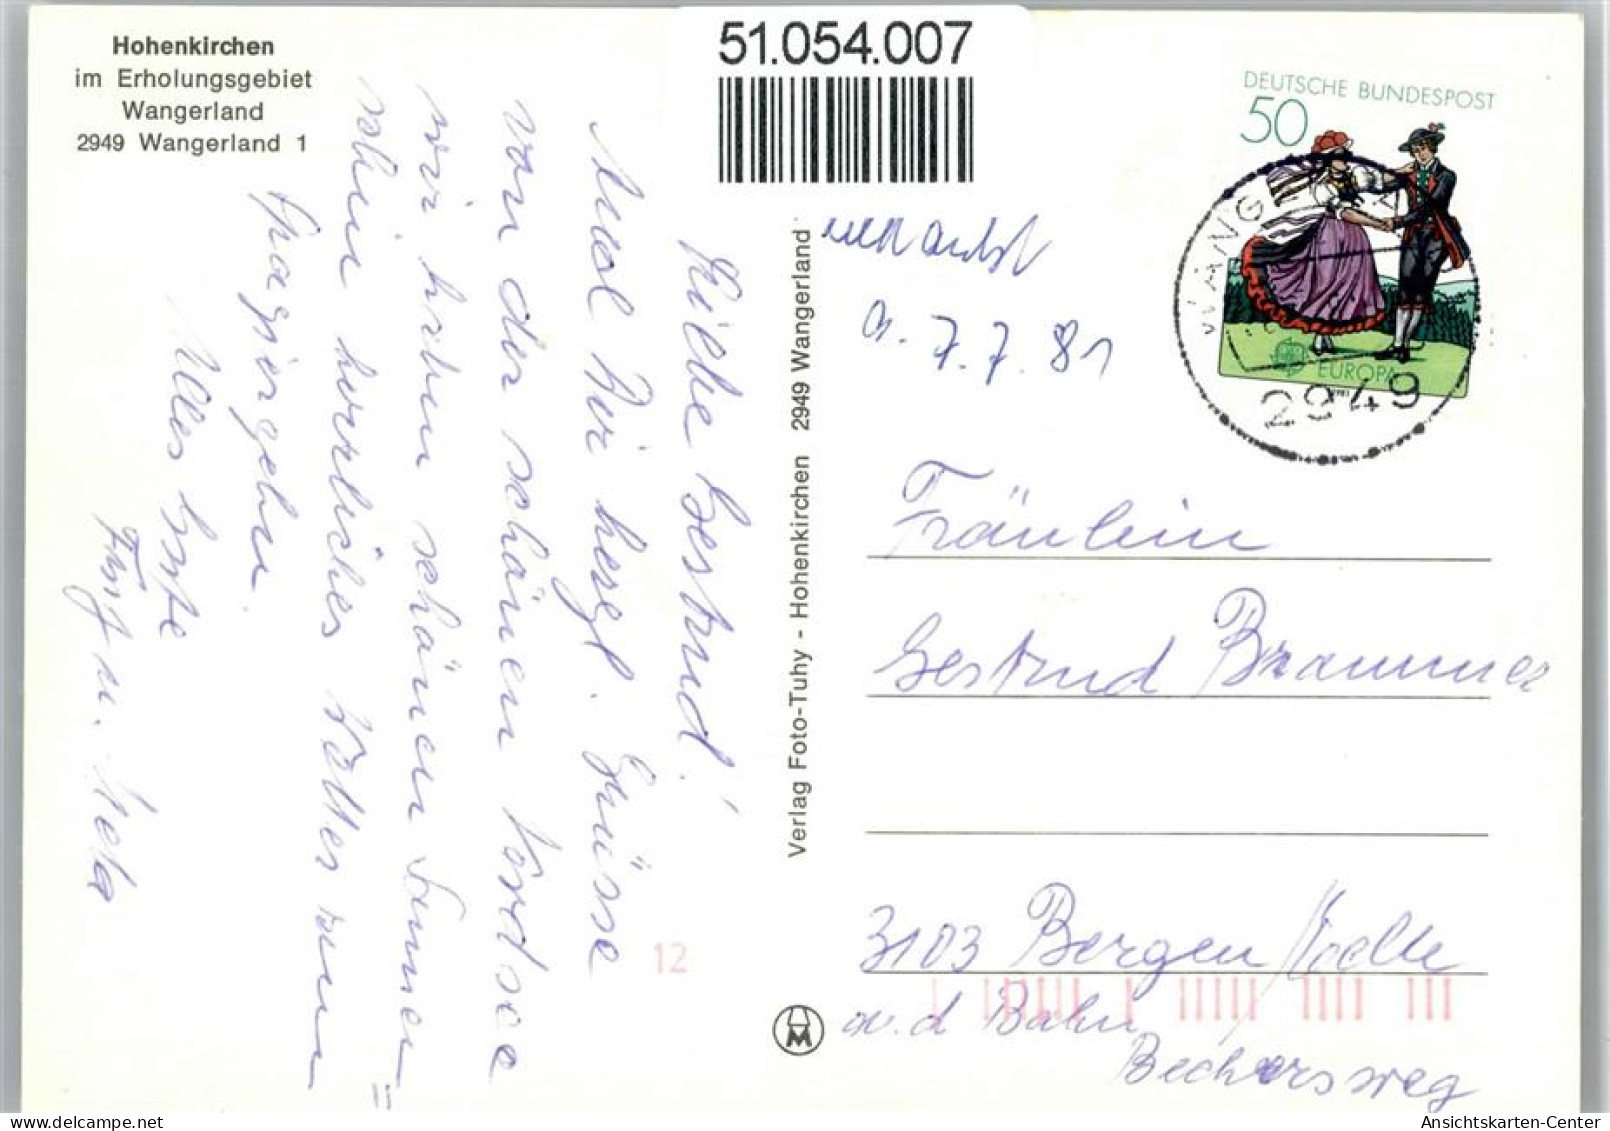 Hohenkirchen
im Erholungsgebiet
Wangerland
2949 Wangerland 1
51.054.007
DEUTSCHE BUNDESPOST
50
EUROPA
2949
7.7.81
Liebe Gertrud!
Mal Dir herzl. Grüsse
von der schönen Nordsee
wir haben schönen Sonnen=
schein herrliches Wetter zum
Spaziergehn.
Alles Gute
u.
Verlag Foto-Tuhy - Hohenkirchen 2949 Wangerland
Fräulein
Gertrud Brammer
3103 Bergen / Celle
a.d Bahn
Beckersweg
12
M
Ansichtskarten-Center